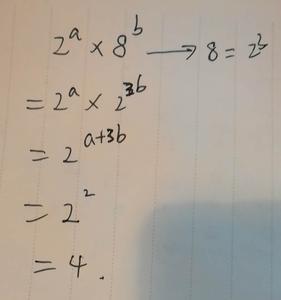 2^a × 8^b → 8 = 2^3
= 2^a × 2^3b
= 2^a+3b
= 2^2
= 4.